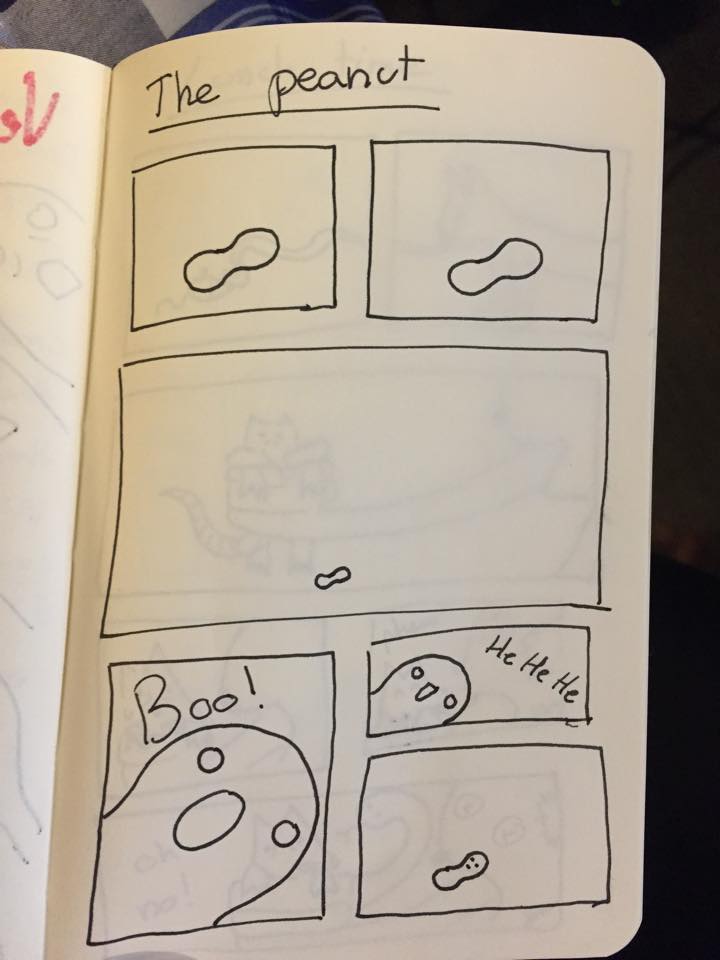 The peanut
Boo!
He He He